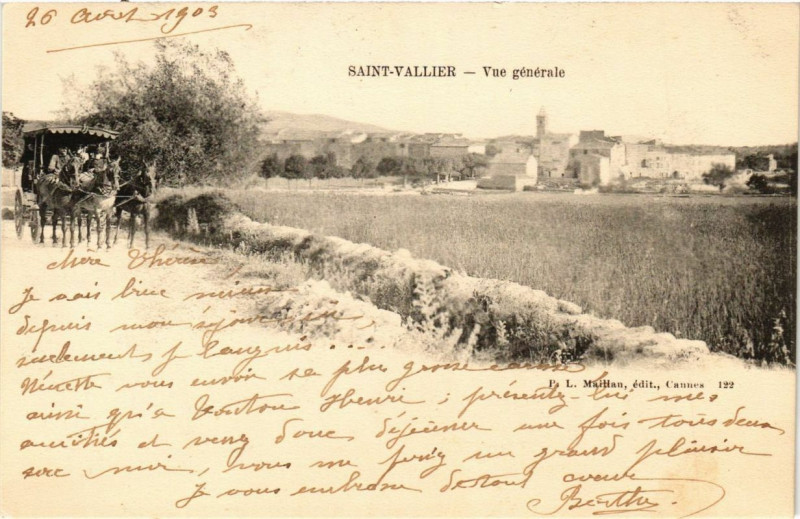 26 Avril 1903
SAINT-VALLIER — Vue générale
chère Thérèse,
Je vais bien mieux
depuis mon séjour ici
seulement je languis ....
Ninette vous envoie sa plus grosse caresse
P. L. Maillan, édit., Cannes 122
ainsi qu'à Tonton ; présentez-lui mes
amitiés et venez donc déjeuner une fois tous deux
, vous me ferez un grand plaisir
Je vous embrasse de tout cœur
Berthe.